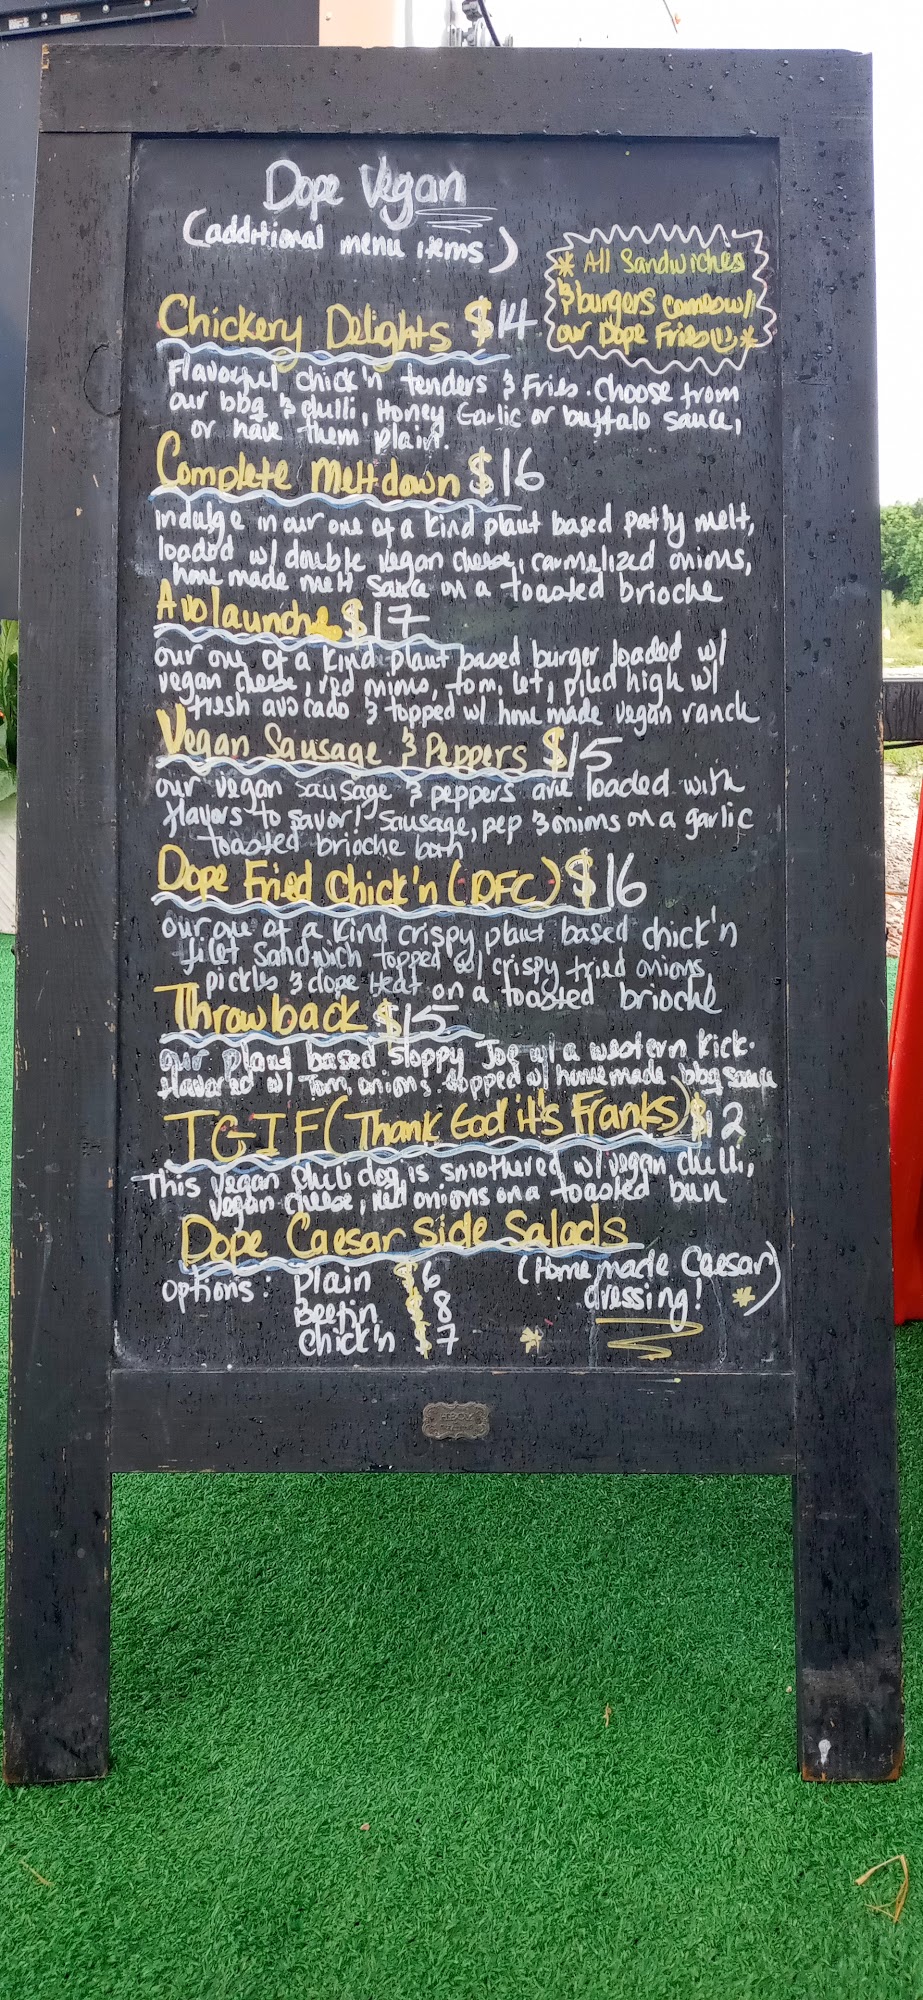 Dope Vegan
(additional menu items)
* All Sandwiches
& burgers comes w/
our Dope Fries ☺*
Chickery Delights $14
Flavorful chick'n tenders & Fries. Choose from
our bbq & chilli, Honey Garlic or buffalo sauce,
or have them plain.
Complete Meltdown $16
indulge in our one of a kind plant based patty melt,
loaded w/ double vegan cheese, carmelized onions,
home made melt sauce on a toasted brioche
Avolaunche $17
our one of a kind plant based burger loaded w/
vegan cheese, red onions, tom, let, piled high w/
fresh avocado & topped w/ home made vegan ranch
Vegan Sausage & Peppers $15
our vegan sausage & peppers are loaded with
flavors to savor! Sausage, pep & onions on a garlic
toasted brioche bath
Dope Fried Chick'n (DFC) $16
our one of a kind crispy plant based chick'n
filet sandwich topped w/ crispy fried onions,
pickles & dope Heat on a toasted brioche
Throwback $15
our plant based sloppy Joe w/ a western kick.
flavored w/ tom, onions topped w/ homemade bbq sauce
TGIF (Thank God it's Franks) $12
This vegan chili dog is smothered w/ vegan chilli,
vegan cheese, red onions on a toasted bun
Dope Caesar Side Salads
options: Plain $6 (Home made Caesar)
Beefin $8 dressing!
Chick'n $7